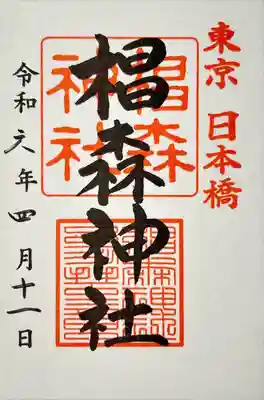 東京 日本橋
椙森神社
椙森神社
令和六年四月十一日